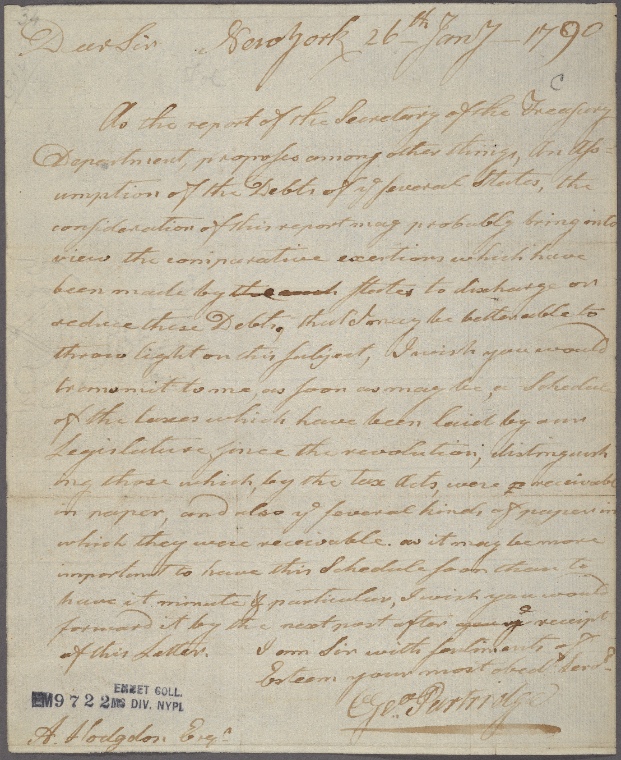 Dear Sir New York 26th Jany 1790
As the report of the Secretary of the Treasury
Department, proposes among other things, An Ass-
umption of the Debts of ye several States, the
consideration of this report may probably bring into
view the comparative exertions which have
been made by the each States to discharge or
reduce these Debts, that I may be better able to
throw light on this subject, I wish you would
transmit to me, as soon as may be, a Schedule
of the taxes which have been laid by our
Legislature since the revolution, distinguish
ing those which, by the tax Acts, were receivable
in paper, and also ye several kinds of paper in
which they were receivable. as it may be more
important to have this Schedule soon than to
have it minute & particular, I wish you would
forward it by the next post after receipt
of this Letter. I am Sir with sentiments of
Esteem your most obedt Servt
Geo. Partridge
EMMET COLL.
EM9722 MS DIV. NYPL
A. Hodgdon Esqr